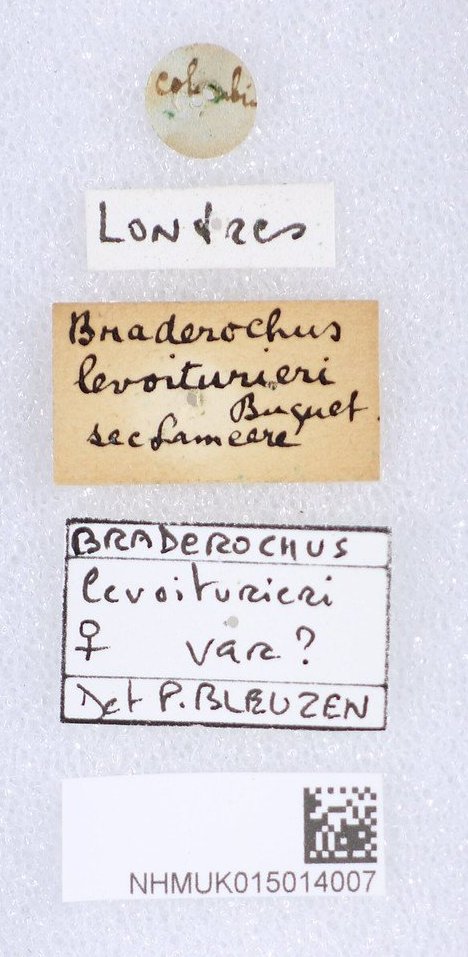 colombia
Londres
Braderochus
levoiturieri
Buquet.
sec Lameere
BRADEROCHUS
levoiturieri
♀ var?
Det P. BLEUZEN
NHMUK015014007